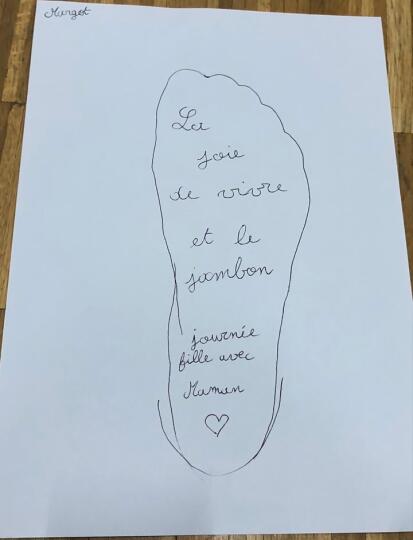 Margot
La
joie
de vivre
et le
jambon
journée
fille avec
Maman